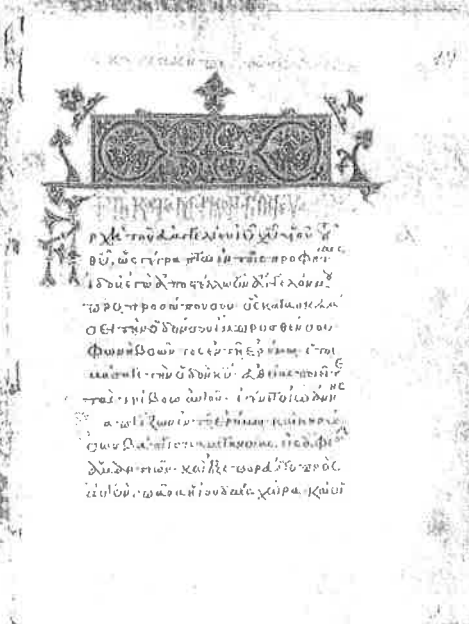 Ἀρχὴ τοῦ εὐαγγελίου ιυ χυ υἱοῦ τοῦ
θυ, ὡς γέγραπται ἐν τοῖς προφήταις
ἰδοὺ ἐγὼ ἀποστέλλω τὸν ἄγγελόν μου
πρὸ προσώπου σου ὃς κατασκευά
σει τὴν ὁδόν σου ἔμπροσθέν σου
φωνὴ βοῶντος ἐν τῇ ἐρήμῳ ἑτοι
μάσατε τὴν ὁδὸν κυ· εὐθείας ποιεῖτε
τὰς τρίβους αὐτοῦ· ἐγένετο ἰωάννης
βαπτίζων ἐν τῇ ἐρήμῳ καὶ κηρύσ
σων βάπτισμα μετανοίας εἰς ἄφεσιν
ἁμαρτιῶν· καὶ ἐξεπορεύετο πρὸς
αὐτὸν πᾶσα ἡ ἰουδαία χώρα καὶ οἱ